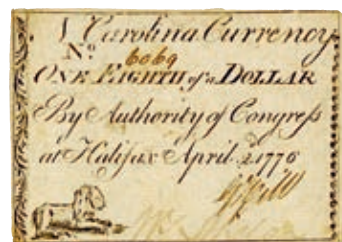 N Carolina Currency
No. 6069
ONE EIGHTH of a DOLLAR
By Authority of Congress
at Halifax April 2. 1776